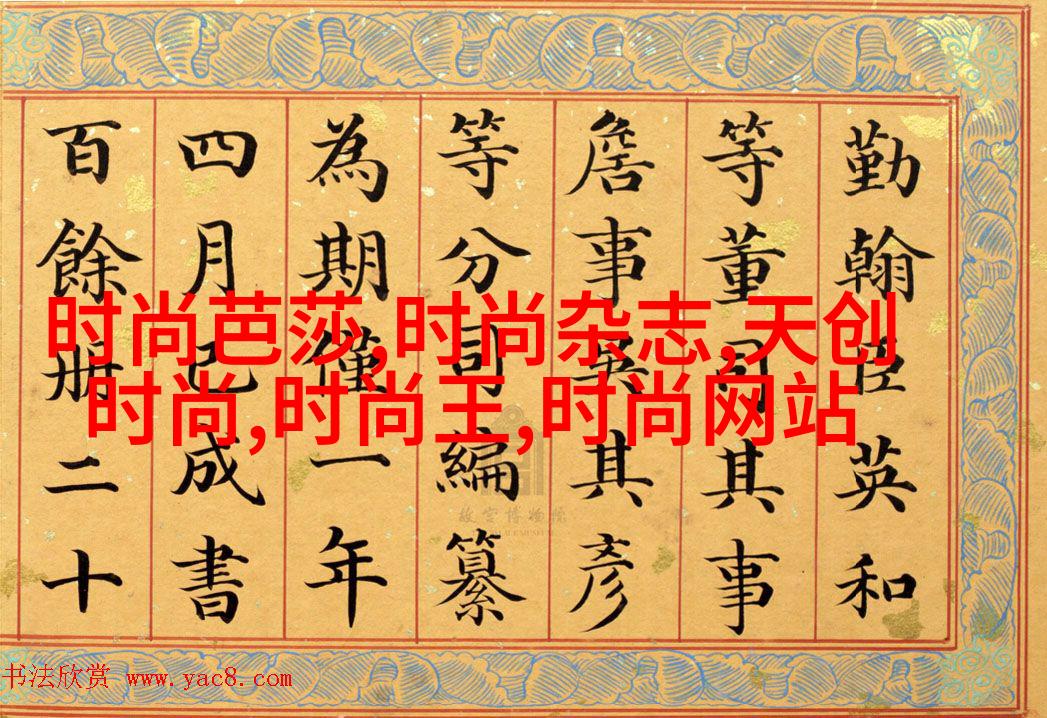 勤翰臣英和
等董司其事
詹事吳其彥
等分司編纂
為期僅一年
四月已成書
百餘册二十
时尚芭莎,时尚杂志,天创
时尚,时尚王,时尚网站
故宮博物院
书法欣赏 www.yac8.com